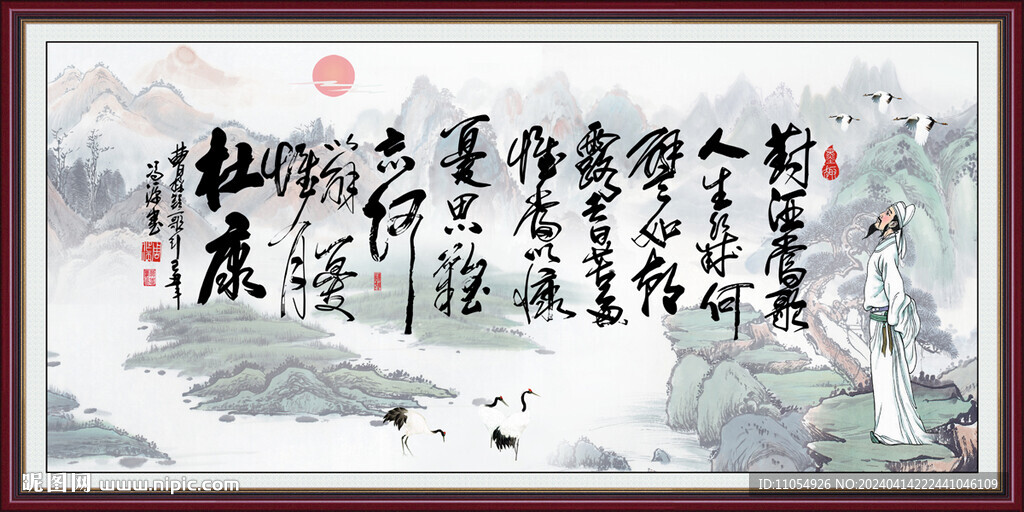 對酒當歌
人生幾何
譬如朝
露去日苦多
慨當以慷
憂思難
忘何
以解憂
惟有
杜康
曹操短歌行
昵图网 www.nipic.com
ID:11054926 NO:20240414222441046109